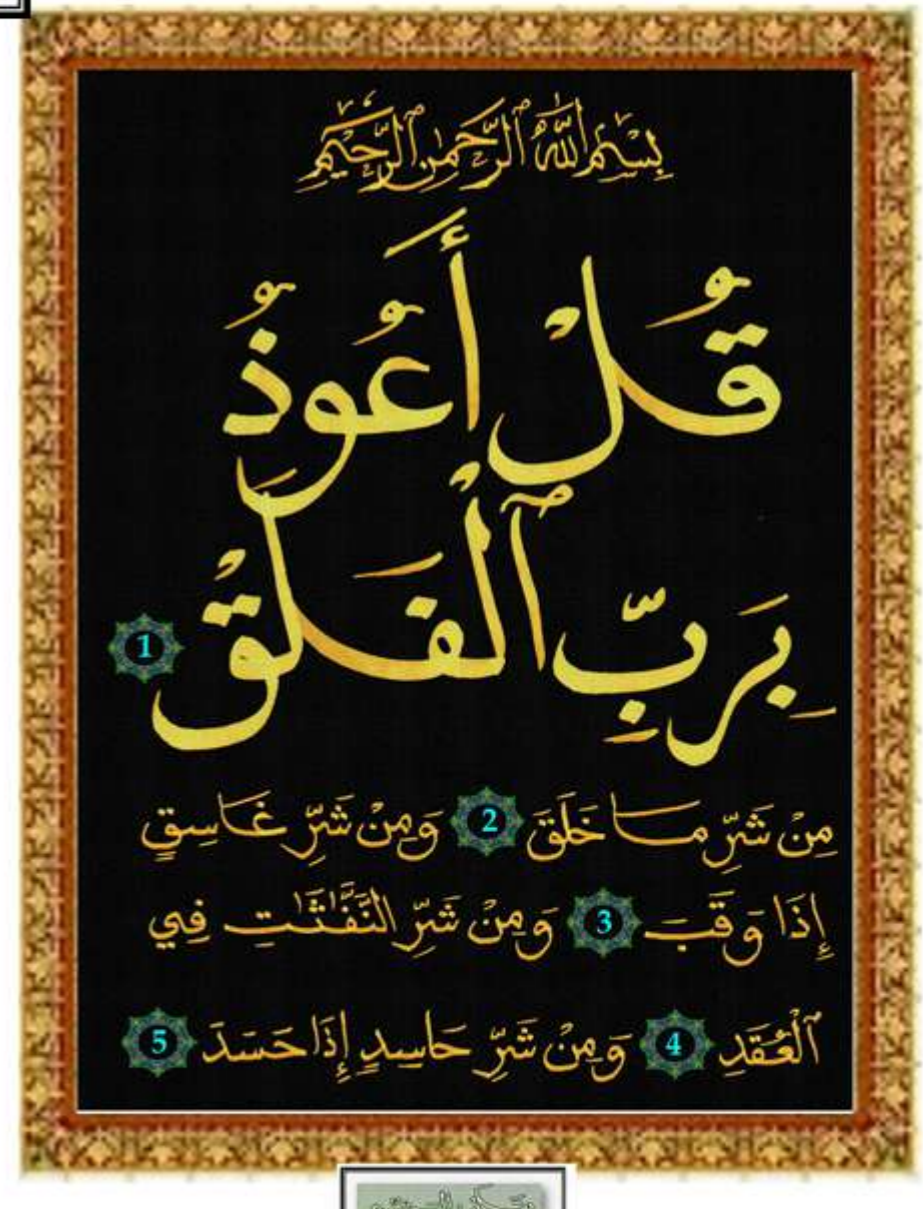 بِسْمِ ٱللَّهِ ٱلرَّحْمَٰنِ ٱلرَّحِيمِ
قُلْ أَعُوذُ
بِرَبِّ ٱلْفَلَقْ 1
مِنْ شَرِّ مَا خَلَقَ 2 وَمِنْ شَرِّ غَاسِقٍ
إِذَا وَقَبَ 3 وَمِنْ شَرِّ النَّفَّٰثَٰتِ فِي
ٱلْعُقَدِ 4 وَمِنْ شَرِّ حَاسِدٍ إِذَا حَسَدَ 5